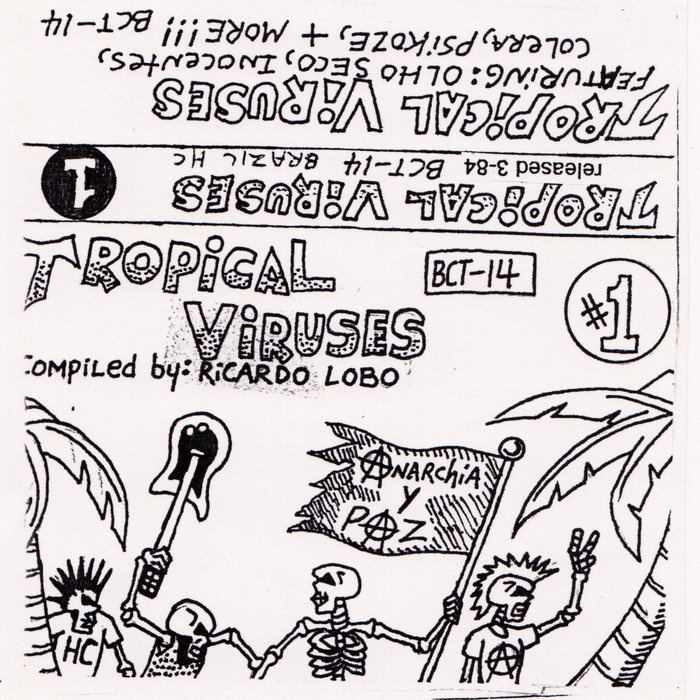 TROPiCAL ViRUSES
FEATURiNG: OLHO SECO, iNOCENTES,
COLERA, PSiKOZE, + MORE!!! BCT-14
TROPiCAL ViRUSES
released 3-84 BCT-14 BRAZIL HC
1
TROPiCAL
ViRUSES
BCT-14
#1
COMPiLED by: RiCARDO LOBO
ANARCHiA
Y
PAZ
HC
A